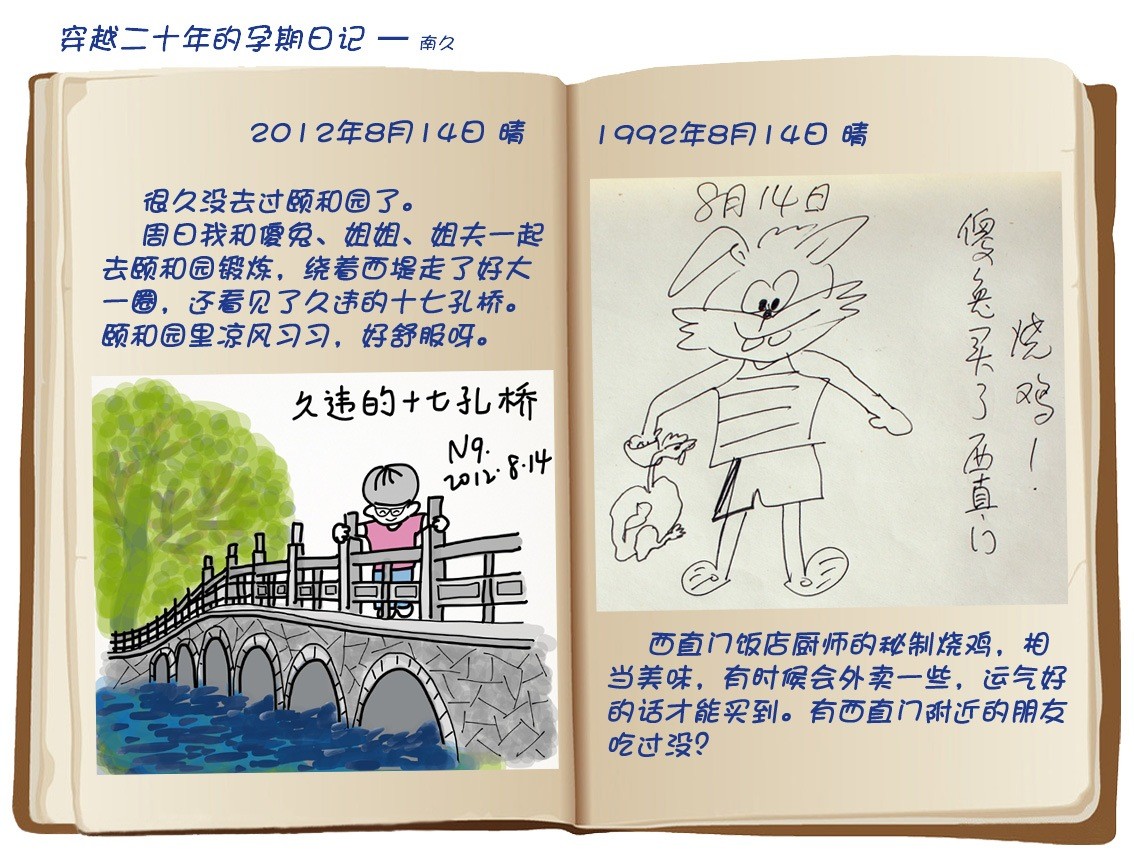 穿越二十年的孕期日记 — 南久
2012年8月14日 晴
很久没去过颐和园了。
周日我和傻兔、姐姐、姐夫一起
去颐和园锻炼，绕着西堤走了好大
一圈，还看见了久违的十七孔桥。
颐和园里凉风习习，好舒服呀。
久违的十七孔桥
N9.
2012.8.14
1992年8月14日 晴
8月14日
傻兔买了西直门
烧鸡！
西直门饭店厨师的秘制烧鸡，相
当美味，有时候会外卖一些，运气好
的话才能买到。有西直门附近的朋友
吃过没？